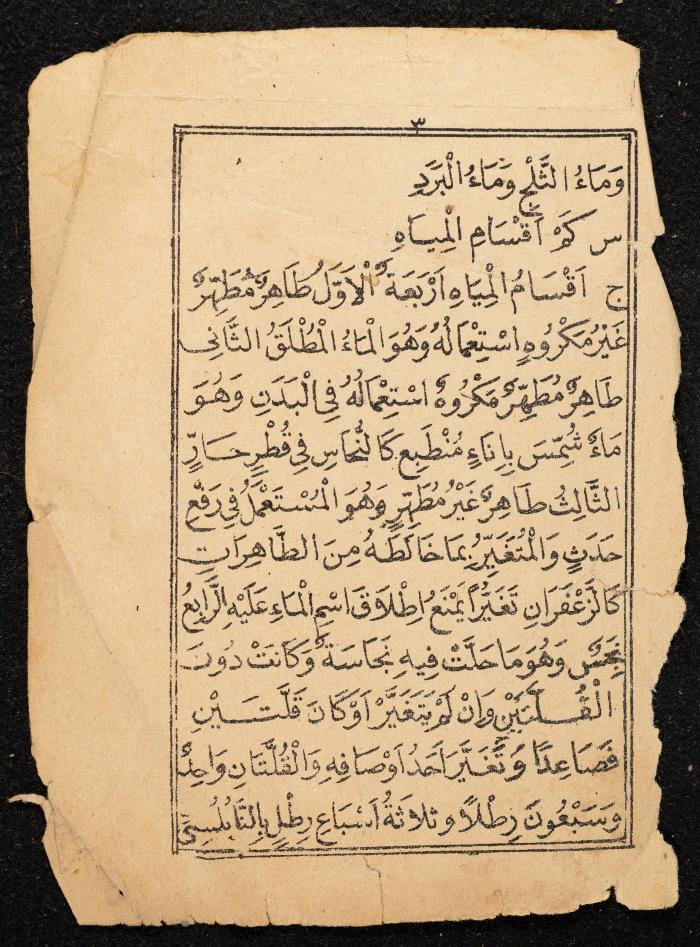 ٣
وَمَاءُ الثَّلْجِ وَمَاءُ الْبَرَدِ
س كَمْ اَقْسَامِ الْمِيَاهِ
ج اَقْسَامُ الْمِيَاهِ اَرْبَعَةٌ اْلاَوَّلُ طَاهِرٌ مُطَهِّرٌ
غَيْرُ مَكْرُوهٍ اِسْتِعْمَالُهُ وَهُوَ الْمَاءُ الْمُطْلَقُ الثَّانِى
طَاهِرٌ مُطَهِّرٌ مَكْرُوهٌ اسْتِعْمَالُهُ فِى الْبَدَنِ وَهُوَ
مَاءٌ شُمِّسَ بِاِنَاءٍ مُنْطَبِعٍ كَالنُّحَاسِ فِى قُطْرٍ حَارٍّ
الثَّالِثُ طَاهِرٌ غَيْرُ مُطَهِّرٍ وَهُوَ الْمُسْتَعْمَلُ فِى رَفْعِ
حَدَثٍ وَالْمُتَغَيِّرُ بِمَا خَالَطَهُ مِنَ الطَّاهِرَاتِ
كَالزَّعْفَرَانِ تَغَيُّرًا يَمْنَعُ اِطْلَاقَ اسْمِ الْمَاءِ عَلَيْهِ الرَّابِعُ
نَجِسٌ وَهُوَ مَا حَلَّتْ فِيهِ نَجَاسَةٌ وَكَانَتْ دُونَ
الْقُلَّتَيْنِ وَاِنْ لَمْ يَتَغَيَّرْ اَوْ كَانَ قُلَّتَيْنِ
فَصَاعِدًا وَتَغَيَّرَ اَحَدُ اَوْصَافِهِ وَالْقُلَّتَانِ وَاحِدٌ
وَسَبْعُونَ رِطْلاً وَثلاَثَةُ اَسْبَاعِ رِطْلٍ بِالنَّابُلُسِىِّ